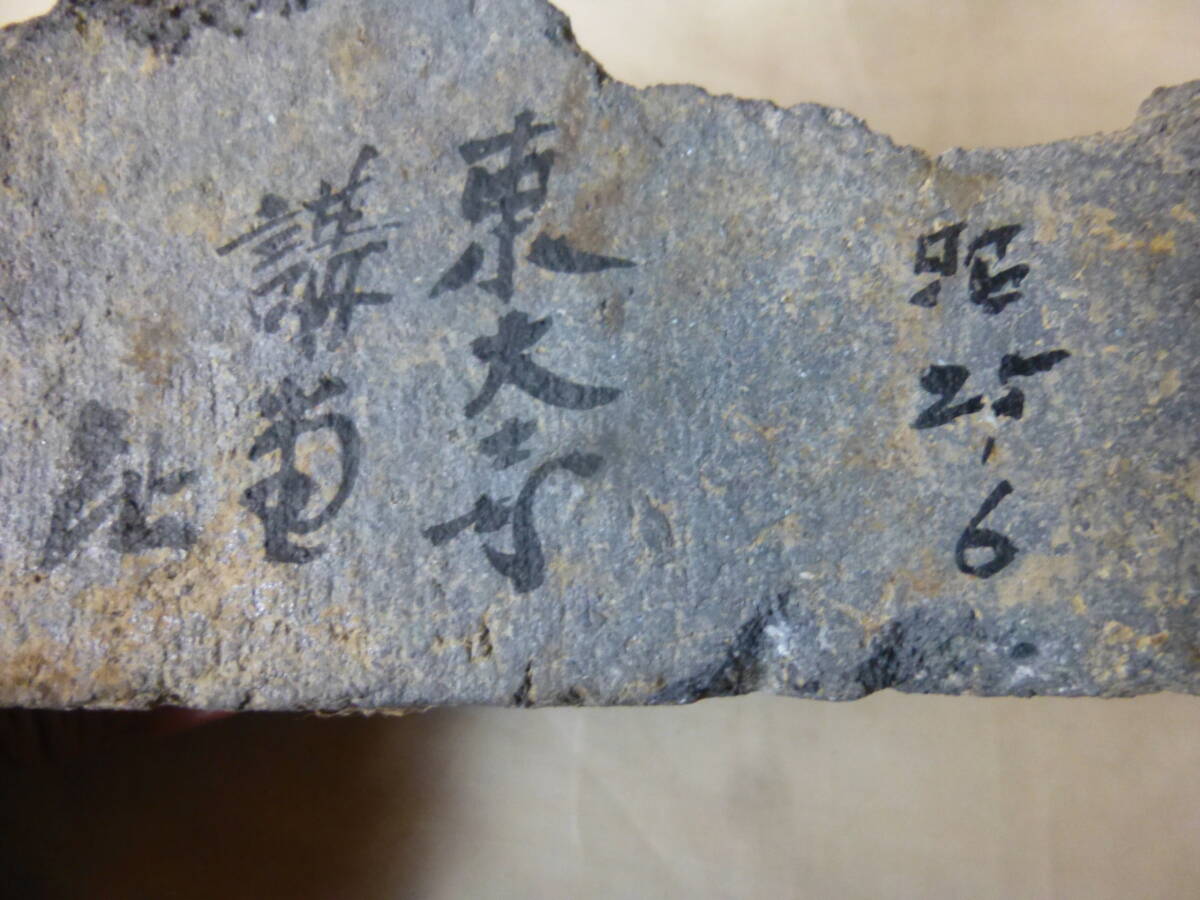 昭25.6
東大寺
講堂
址